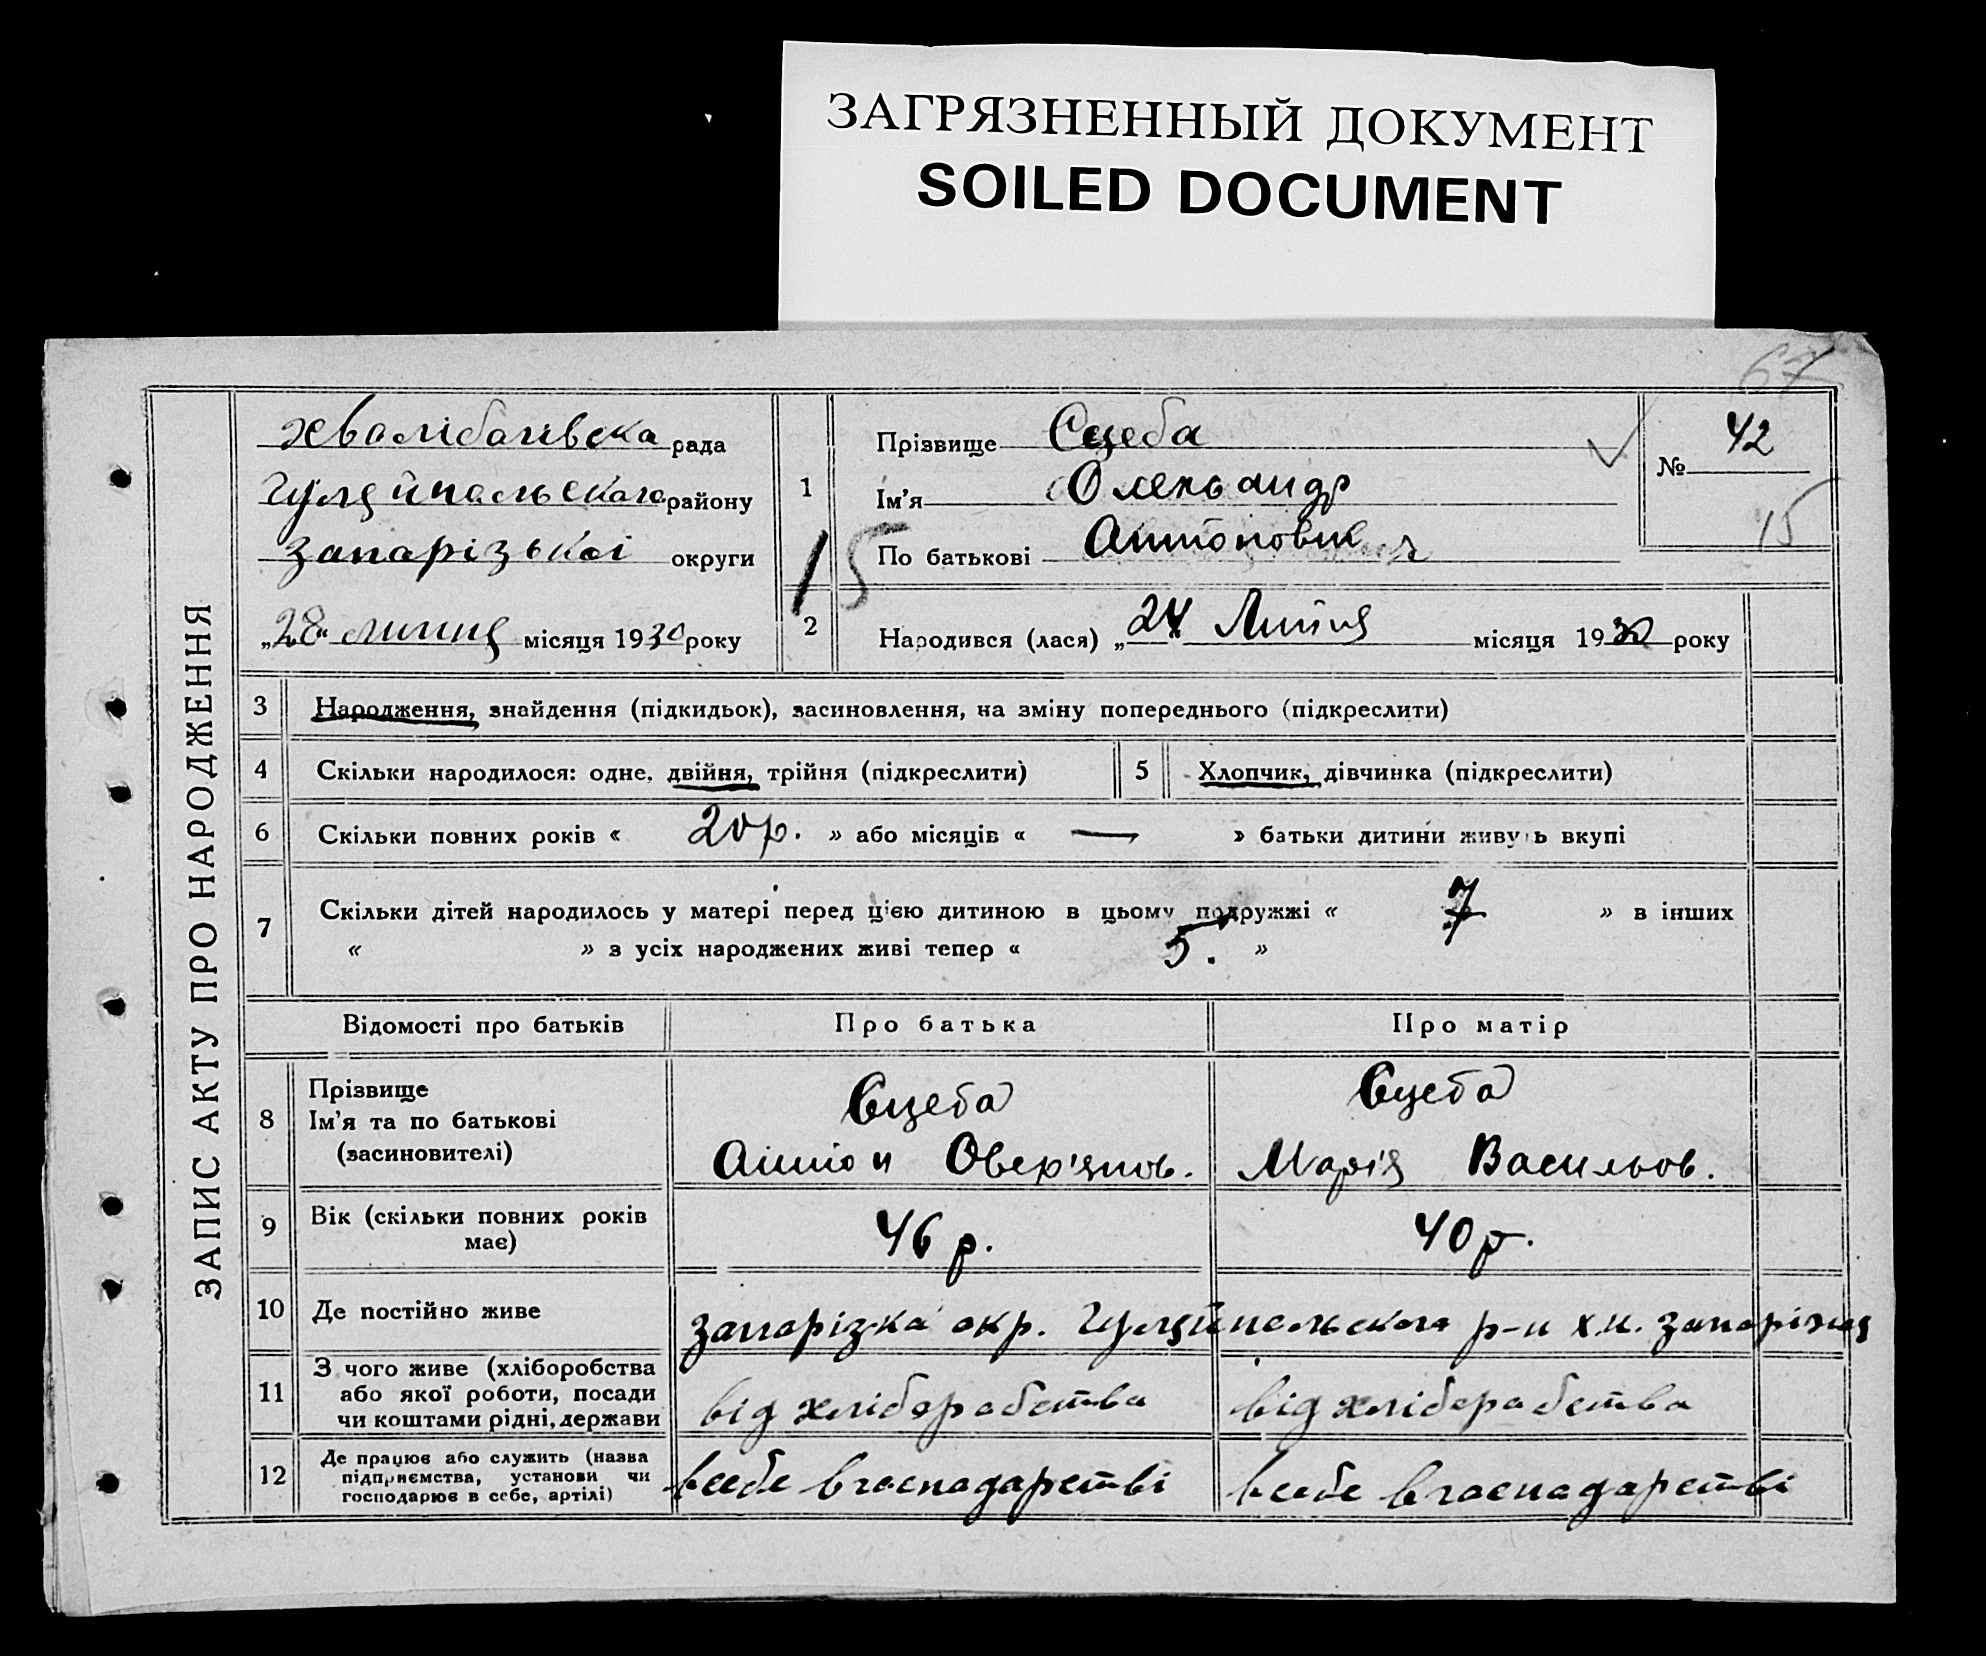 ЗАГРЯЗНЕННЫЙ ДОКУМЕНТ
SOILED DOCUMENT
67
ЗАПИС АКТУ ПРО НАРОДЖЕННЯ
рада
Гуляйпальского району
запарізькоі округи
„28“ липня місяця 1930 року
15
1 Прізвище Єцеба
Ім'я Олександр
По батькові Антонович
№ 42
15
2 Народився (лася) „24 Липня місяця 1930 року
3 Народження, знайдення (підкидьок), засиновлення, на зміну попереднього (підкреслити)
4 Скільки народилося: одне, двійня, трійня (підкреслити) 5 Хлопчик, дівчинка (підкреслити)
6 Скільки повних років « 20 р. » або місяців « — » батьки дитини живуть вкупі
7 Скільки дітей народилось у матері перед цією дитиною в цьому подружжі « 7 » в інших
« » з усіх народжених живі тепер « 5. »
Відомості про батьків Про батька Про матір
8 Прізвище
Ім'я та по батькові
(засиновителі)
Єцеба
Антон Овер'янов.
Єцеба
Марія Васильов.
9 Вік (скільки повних років
має)
46 р. 40 р.
10 Де постійно живе запарізка окр. Гуляйпольского р-н х.н. запаріжця
11 З чого живе (хліборобства
або якої роботи, посади
чи коштами рідні, держави
від хліборабства від хліборабства
12 Де працює або служить (назва
підприємства, установи чи
господарює в себе, артілі)
в себе в госпадарстві в себе в госпадарстві